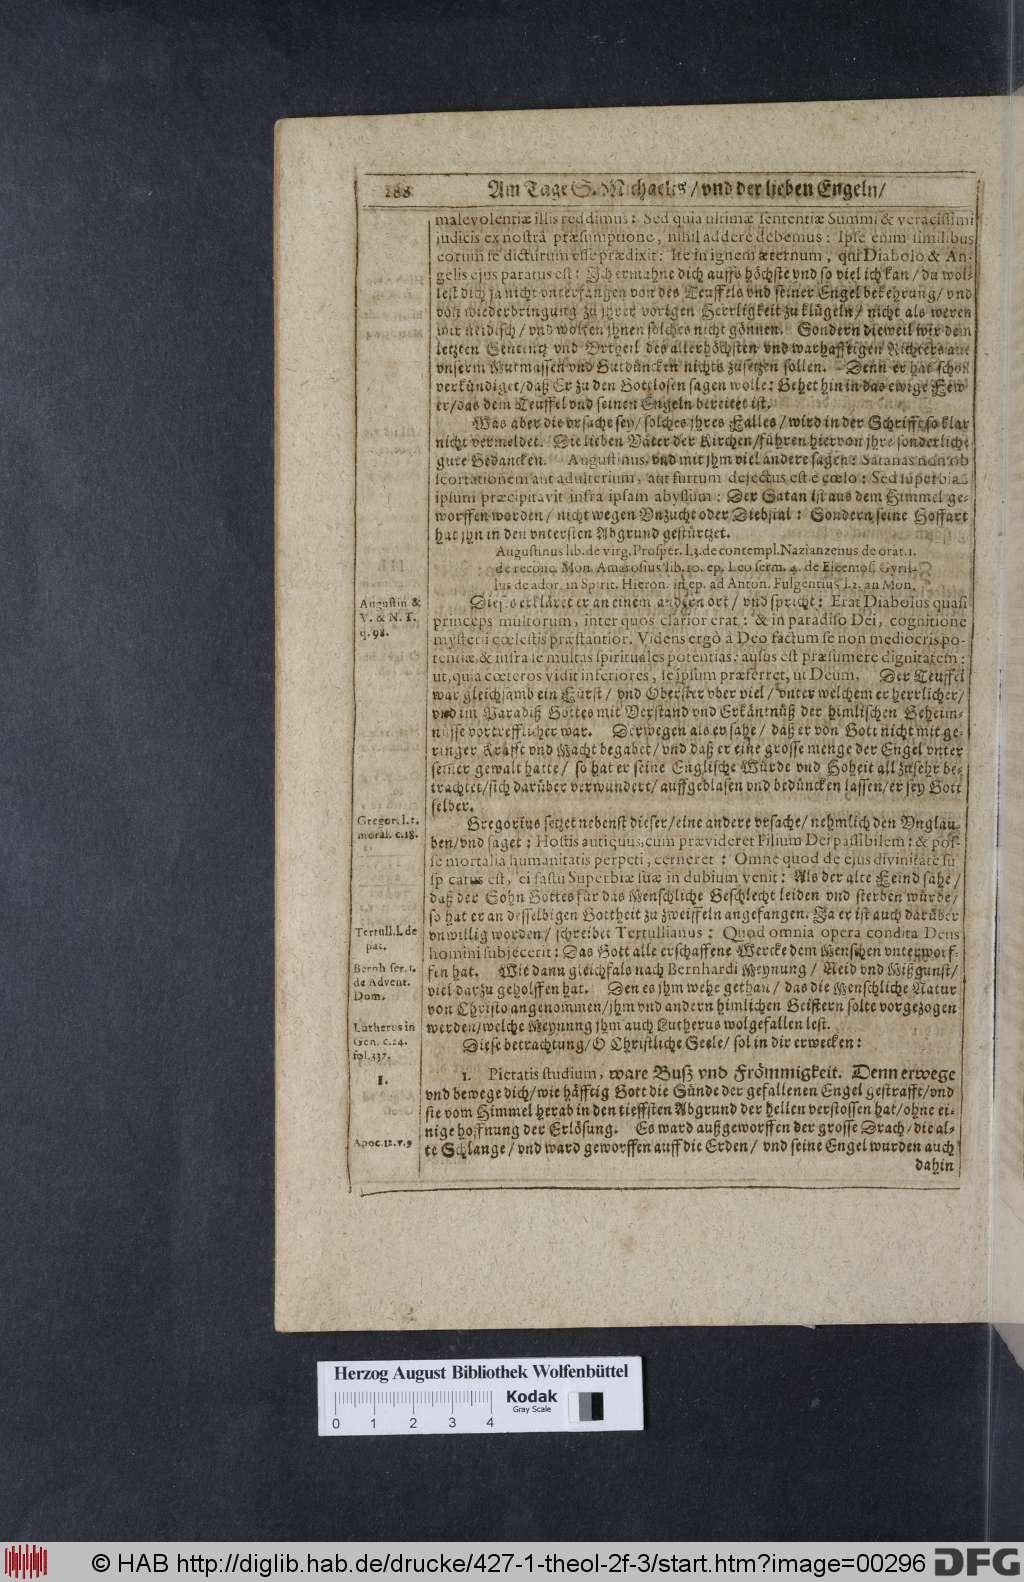 288 Am Tage S. Michaelis / vnd der lieben Engeln /
malevolentiæ illis reddimus: Sed quia ultimæ sententiæ Summi & veracissimi
judicis ex nostrâ præsumptione, nihil addere debemus: Ipse enim similibus
eorum se dicturum esse prædixit: Ite in ignem æternum, qui Diabolo & An-
gelis ejus paratus est: Ich ermahne dich auffs höchste vnd so viel ich kan / du wol-
lest dich ja nicht vnterfangen von des Teuffels vnd seiner Engel bekehrung / vnd
von wiederbringung zu jhrer vorigen Herrligkeit zu klügeln / nicht als weren
wir neidisch / vnd wolten jhnen solches nicht gönnen. Sondern dieweil wir dem
letzten Sententz vnd Vrtheil des allerhöchsten vnd warhafftigen Richters aus
vnserm Mutmassen vnd Gutdüncken nichts zusetzen sollen. Denn er hat schon
verkündiget / daß Er zu den Gottlosen sagen wolle: Gehet hin in das ewige Few-
er / das dem Teuffel vnd seinen Engeln bereitet ist.
Was aber die vrsache sey / solches jhres Falles / wird in der Schrifft so klar
nicht vermeldet. Die lieben Väter der Kirchen / führen hiervon jhre sonderliche
gute Gedancken. Augustinus, vnd mit jhm viel andere sagen: Satanas non ob
scortationem aut adulterium, aut furtum dejectus est è cœlo: Sed superbia
ipsum præcipitavit infra ipsam abyssum: Der Satan ist aus dem Himmel ge-
worffen worden / nicht wegen Vnzucht oder Diebstal: Sondern seine Hoffart
hat jhn in den vntersten Abgrund gestürtzet.
Augustinus lib. de virg. Prosper. l.3. de contempl. Nazianzenus de orat. 1.
de recono. Mon. Ambrosius lib. 10. ep. Leo serm. 4. de Eleemos. Cyril-
lus de ador. in Spirit. Hieron. in ep. ad Anton. Fulgentius l.2. an Mon.
Augustin &
V. & N. T.
q. 98.
Dieses erkläret er an einem andern ort / vnd spricht: Erat Diabolus quasi
princeps multorum, inter quos clarior erat: & in paradiso Dei, cognitione
mysterii cœlestis præstantior. Videns ergò à Deo factum se non mediocris po-
tentiæ, & infra se multas spirituales potentias: ausus est præsumere dignitatem:
ut, quia cœteros vidit inferiores, se ipsum præferret, ut Deum. Der Teuffel
war gleichsamb ein Fürst / vnd Oberster vber viel / vnter welchem er herrlicher /
vnd im Paradiß Gottes mit Verstand vnd Erkäntnüß der himlischen Geheim-
nüsse vortrefflicher war. Derwegen als er sahe / daß er von Gott nicht mit ge-
ringer Krafft vnd Macht begabet / vnd daß er eine grosse menge der Engel vnter
seiner gewalt hatte / so hat er seine Englische Würde vnd Hoheit all zusehr be-
trachtet / sich darüber verwundert / auffgeblasen vnd bedüncken lassen / er sey Gott
selber.
Gregor. l. 1.
moral. c. 18.
Gregorius setzet nebenst dieser / eine andere vrsache / nehmlich den Vnglau-
ben / vnd saget: Hostis antiquus, cum prævideret Filium Dei passibilem: & pos-
se mortalia humanitatis perpeti, cerneret: Omne quod de ejus divinitate su
spicatus est, ei fastu Superbiæ suæ in dubium venit: Als der alte Feind sahe /
daß der Sohn Gottes für das Menschliche Geschlecht leiden vnd sterben würde /
so hat er an desselbigen Gottheit zu zweiffeln angefangen. Ja er ist auch darüber
Tertull. l. de
pat.
vnwillig worden / schreibet Tertullianus: Quod omnia opera condita Deus
homini subjecerit: Das Gott alle erschaffene Wercke dem Menschen vnterworf-
Bernh. ser. 1.
de Advent.
Dom.
fen hat. Wie dann gleichfals nach Bernhardi Meynung / Neid vnd Mißgunst /
viel darzu geholffen hat. Den es jhm wehe gethan / das die Menschliche Natur
von Christo angenommen / jhm vnd andern himlichen Geistern solte vorgezogen
Lutherus in
Gen. c. 24.
fol. 337.
werden / welche Meynung jhm auch Lutherus wolgefallen lest.
Diese betrachtung / O Christliche Seele / sol in dir erwecken:
I.
1. Pietatis studium, ware Buß vnd Frömmigkeit. Denn erwege
vnd bewege dich / wie häfftig Gott die Sünde der gefallenen Engel gestrafft / vnd
sie vom Himmel herab in den tieffsten Abgrund der hellen verstossen hat / ohne ei-
nige hoffnung der Erlösung. Es ward außgeworffen der grosse Drach / die al-
Apoc. 12. v. 9
te Schlange / vnd ward geworffen auff die Erden / vnd seine Engel wurden auch
dahin
Herzog August Bibliothek Wolfenbüttel
0 1 2 3 4
Kodak
Gray Scale
© HAB http://diglib.hab.de/drucke/427-1-theol-2f-3/start.htm?image=00296
DFG